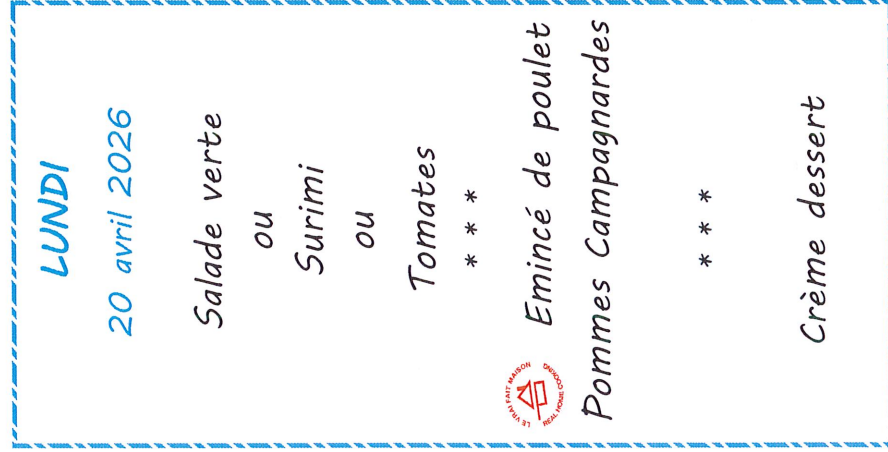 LUNDI
20 avril 2026
Salade verte
ou
Surimi
ou
Tomates
* * *
LE VRAI FAIT MAISON
REAL HOME COOKING
Emincé de poulet
Pommes Campagnardes
* * *
Crème dessert